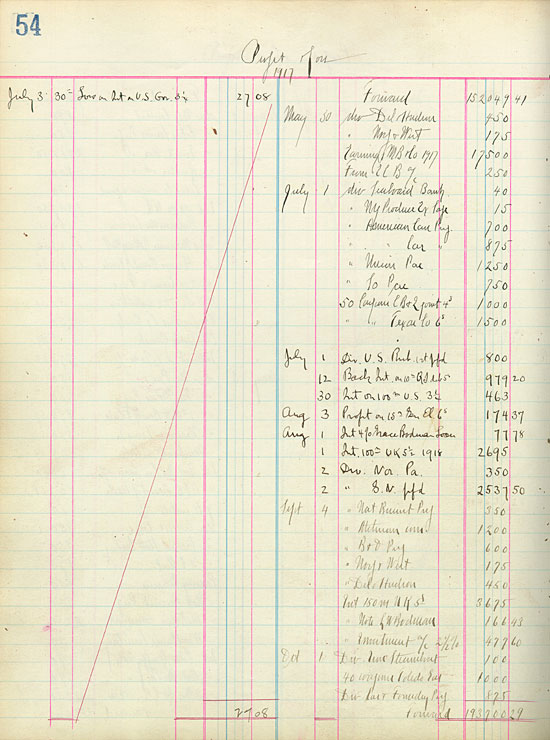 54
Profit & Loss
1917
July 3 30 Loss on Int on U.S. Gov. 3½ 27 08
Forward 152049 41
May 30 div Del & Hudson 450
" Norf & West 175
Earnings MB & Co 1917 17500
From 250
July 1 div Seaboard Bank 40
" NY Produce Ex 15
" American Can Pfg 700
" " Car " 875
" Union Pac 1250
" So Pac 750
50 Coupons CB&Q joint 4s 1000
" " Texas Co 6s 1500
July 1 Div. U.S. Rub 1st pfd 800
12 Back Int. on 979 20
30 Int on 100m U.S. 3½ 463
Aug 3 Profit on 15m Gen El 6s 174 37
Aug 1 Int Grace Bodman Loan 77 78
1 Int. 100m UK 5½ 1918 2695
2 Div. Nor. Pa. 350
2 " G.N. pfd 2537 50
Sept 4 " Nat Biscuit Pfg 350
" com 1200
" B&O Pfg 600
" Norf & West 175
" Del & Hudson 450
Int 150m UK 5s 3675
" Note Bodman 166 43
" Investment a/c 2½% 477 60
Oct 1 Div 100
40 coupons Toledo 1000
Div Car & Foundry Pfg 875
27 08
Forward 193700 29